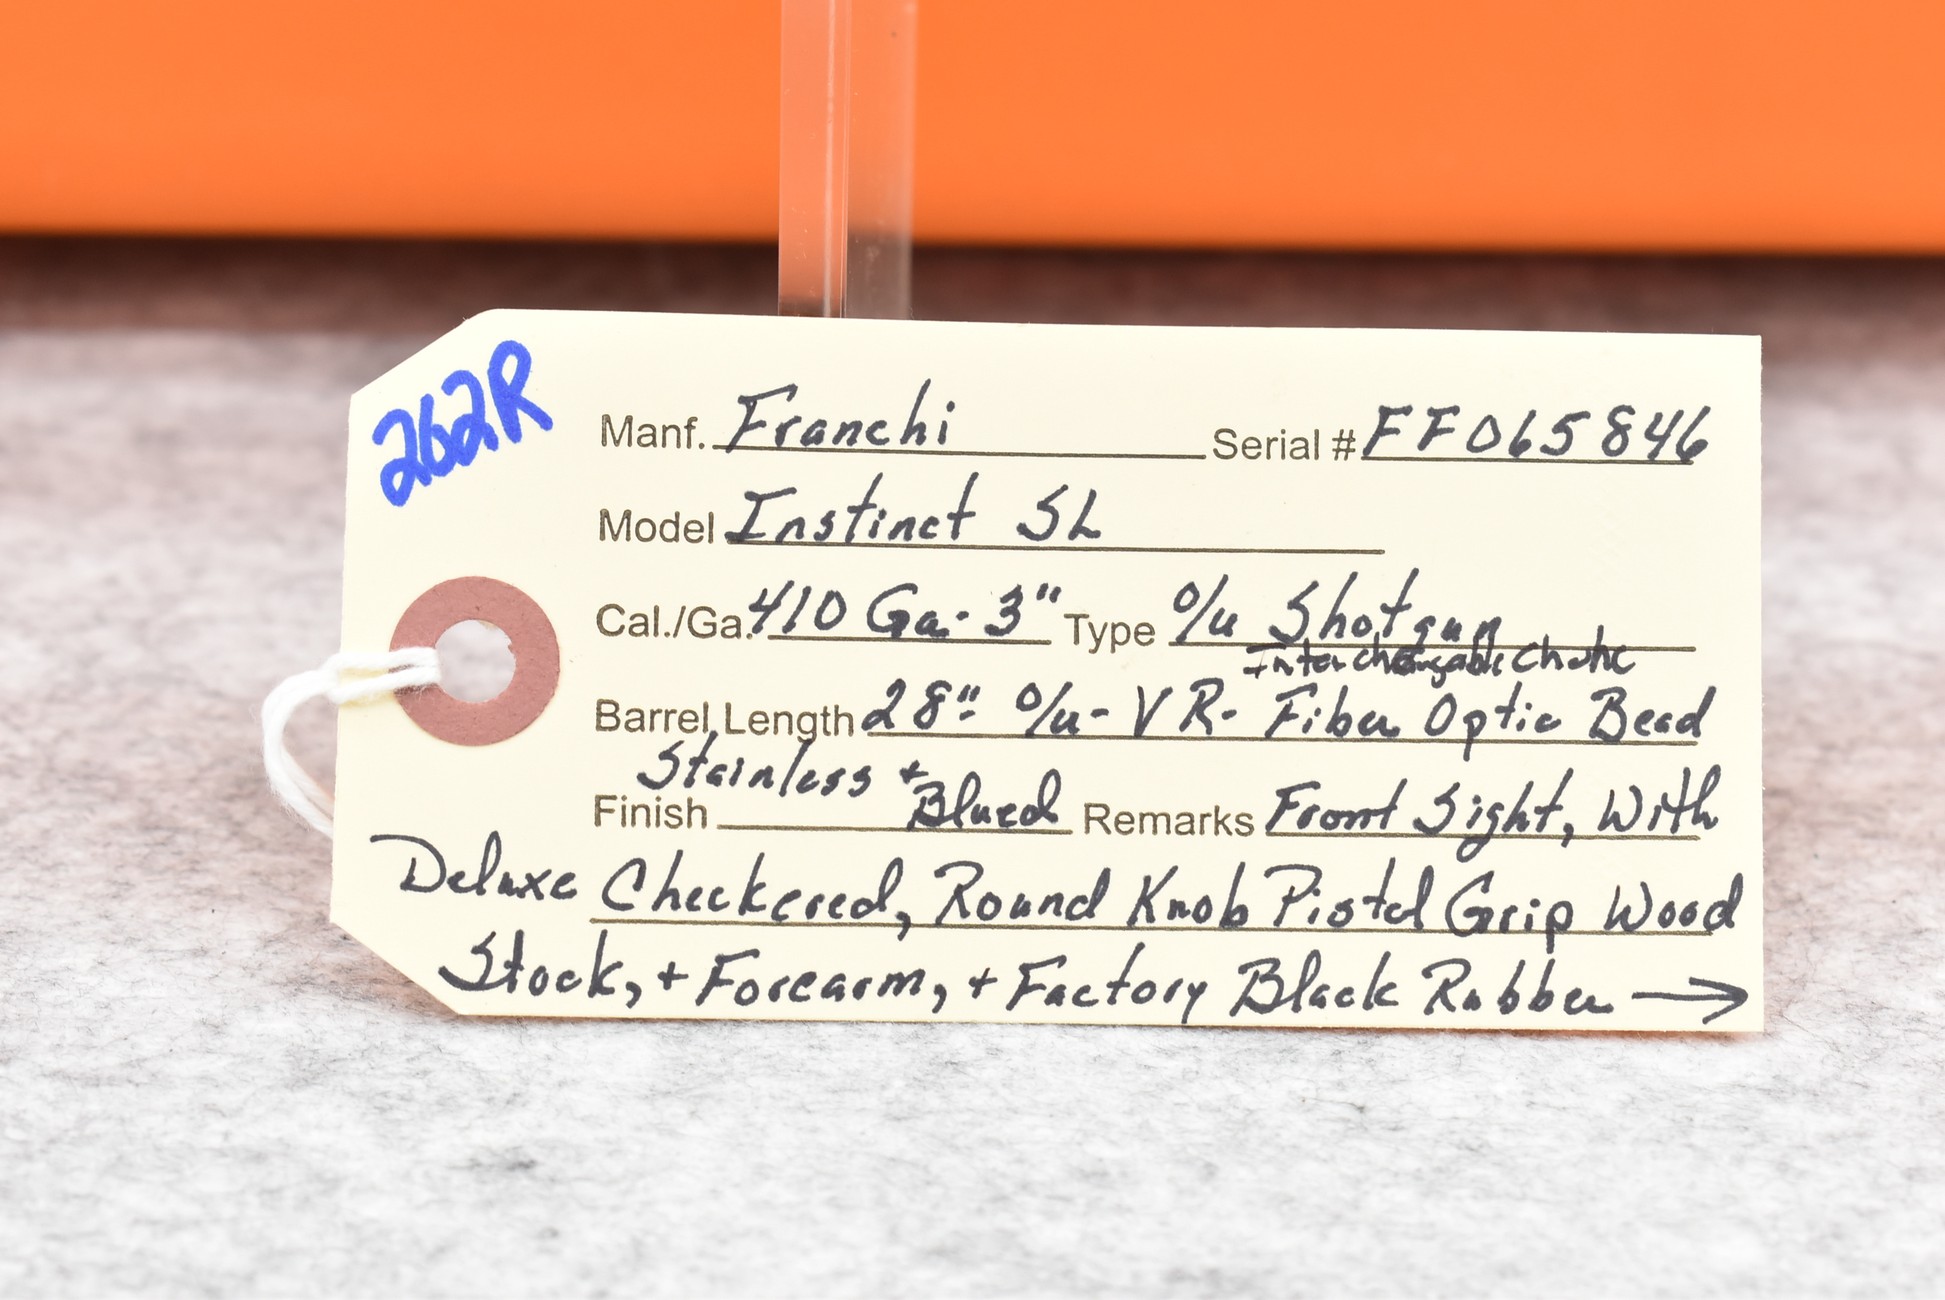 262R
Manf. Franchi Serial # FF065846
Model Instinct SL
Cal./Ga. 410 Ga. 3" Type O/u Shotgun
Interchangable Choke
Barrel Length 28" O/u - VR - Fiber Optic Bead
Stainless +
Finish Blued Remarks Front Sight, With
Deluxe Checkered, Round Knob Pistol Grip Wood
Stock, + Forearm, + Factory Black Rubber →